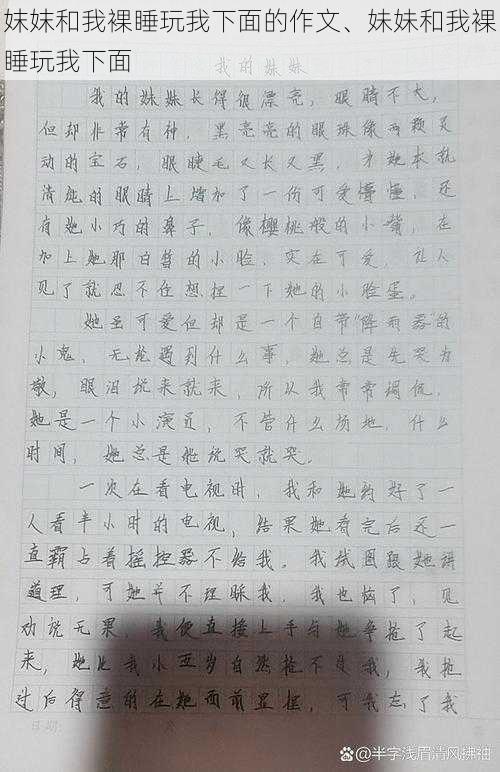 我的妹妹
我的妹妹长得很漂亮，眼睛不大，
但却非常有神，黑亮亮的眼珠像两颗灵
动的宝石，眼睫毛又长又黑，为她本就
清纯的眼睛上增加了一份可爱懵懂，还
有她小巧的鼻子，像樱桃般的小嘴，在
加上她那白皙的小脸，实在可爱，让人
见了就忍不住想捏一下她的小脸蛋。
她虽可爱但却是一个自带“降雨器”的
小鬼，无论遇到什么事，她总是先哭为
敬，眼泪说来就来，所以我常常调侃，
她是一个小演员，不管什么场地，什么
时间，她总是能说哭就哭。
一次在看电视时，我和她约好了一
人看半小时的电视，结果她看完后还一
直霸占着摇控器不给我。我试图跟她讲
道理，可她并不理睬我，我也恼了，见
劝说无果，我便直接上手与她争抢了起
来，她比我小五岁自然抢不过我，我抢
过后得意的在她面前显摆，可我忘了我
日期：
@半字浅眉清风拂袖